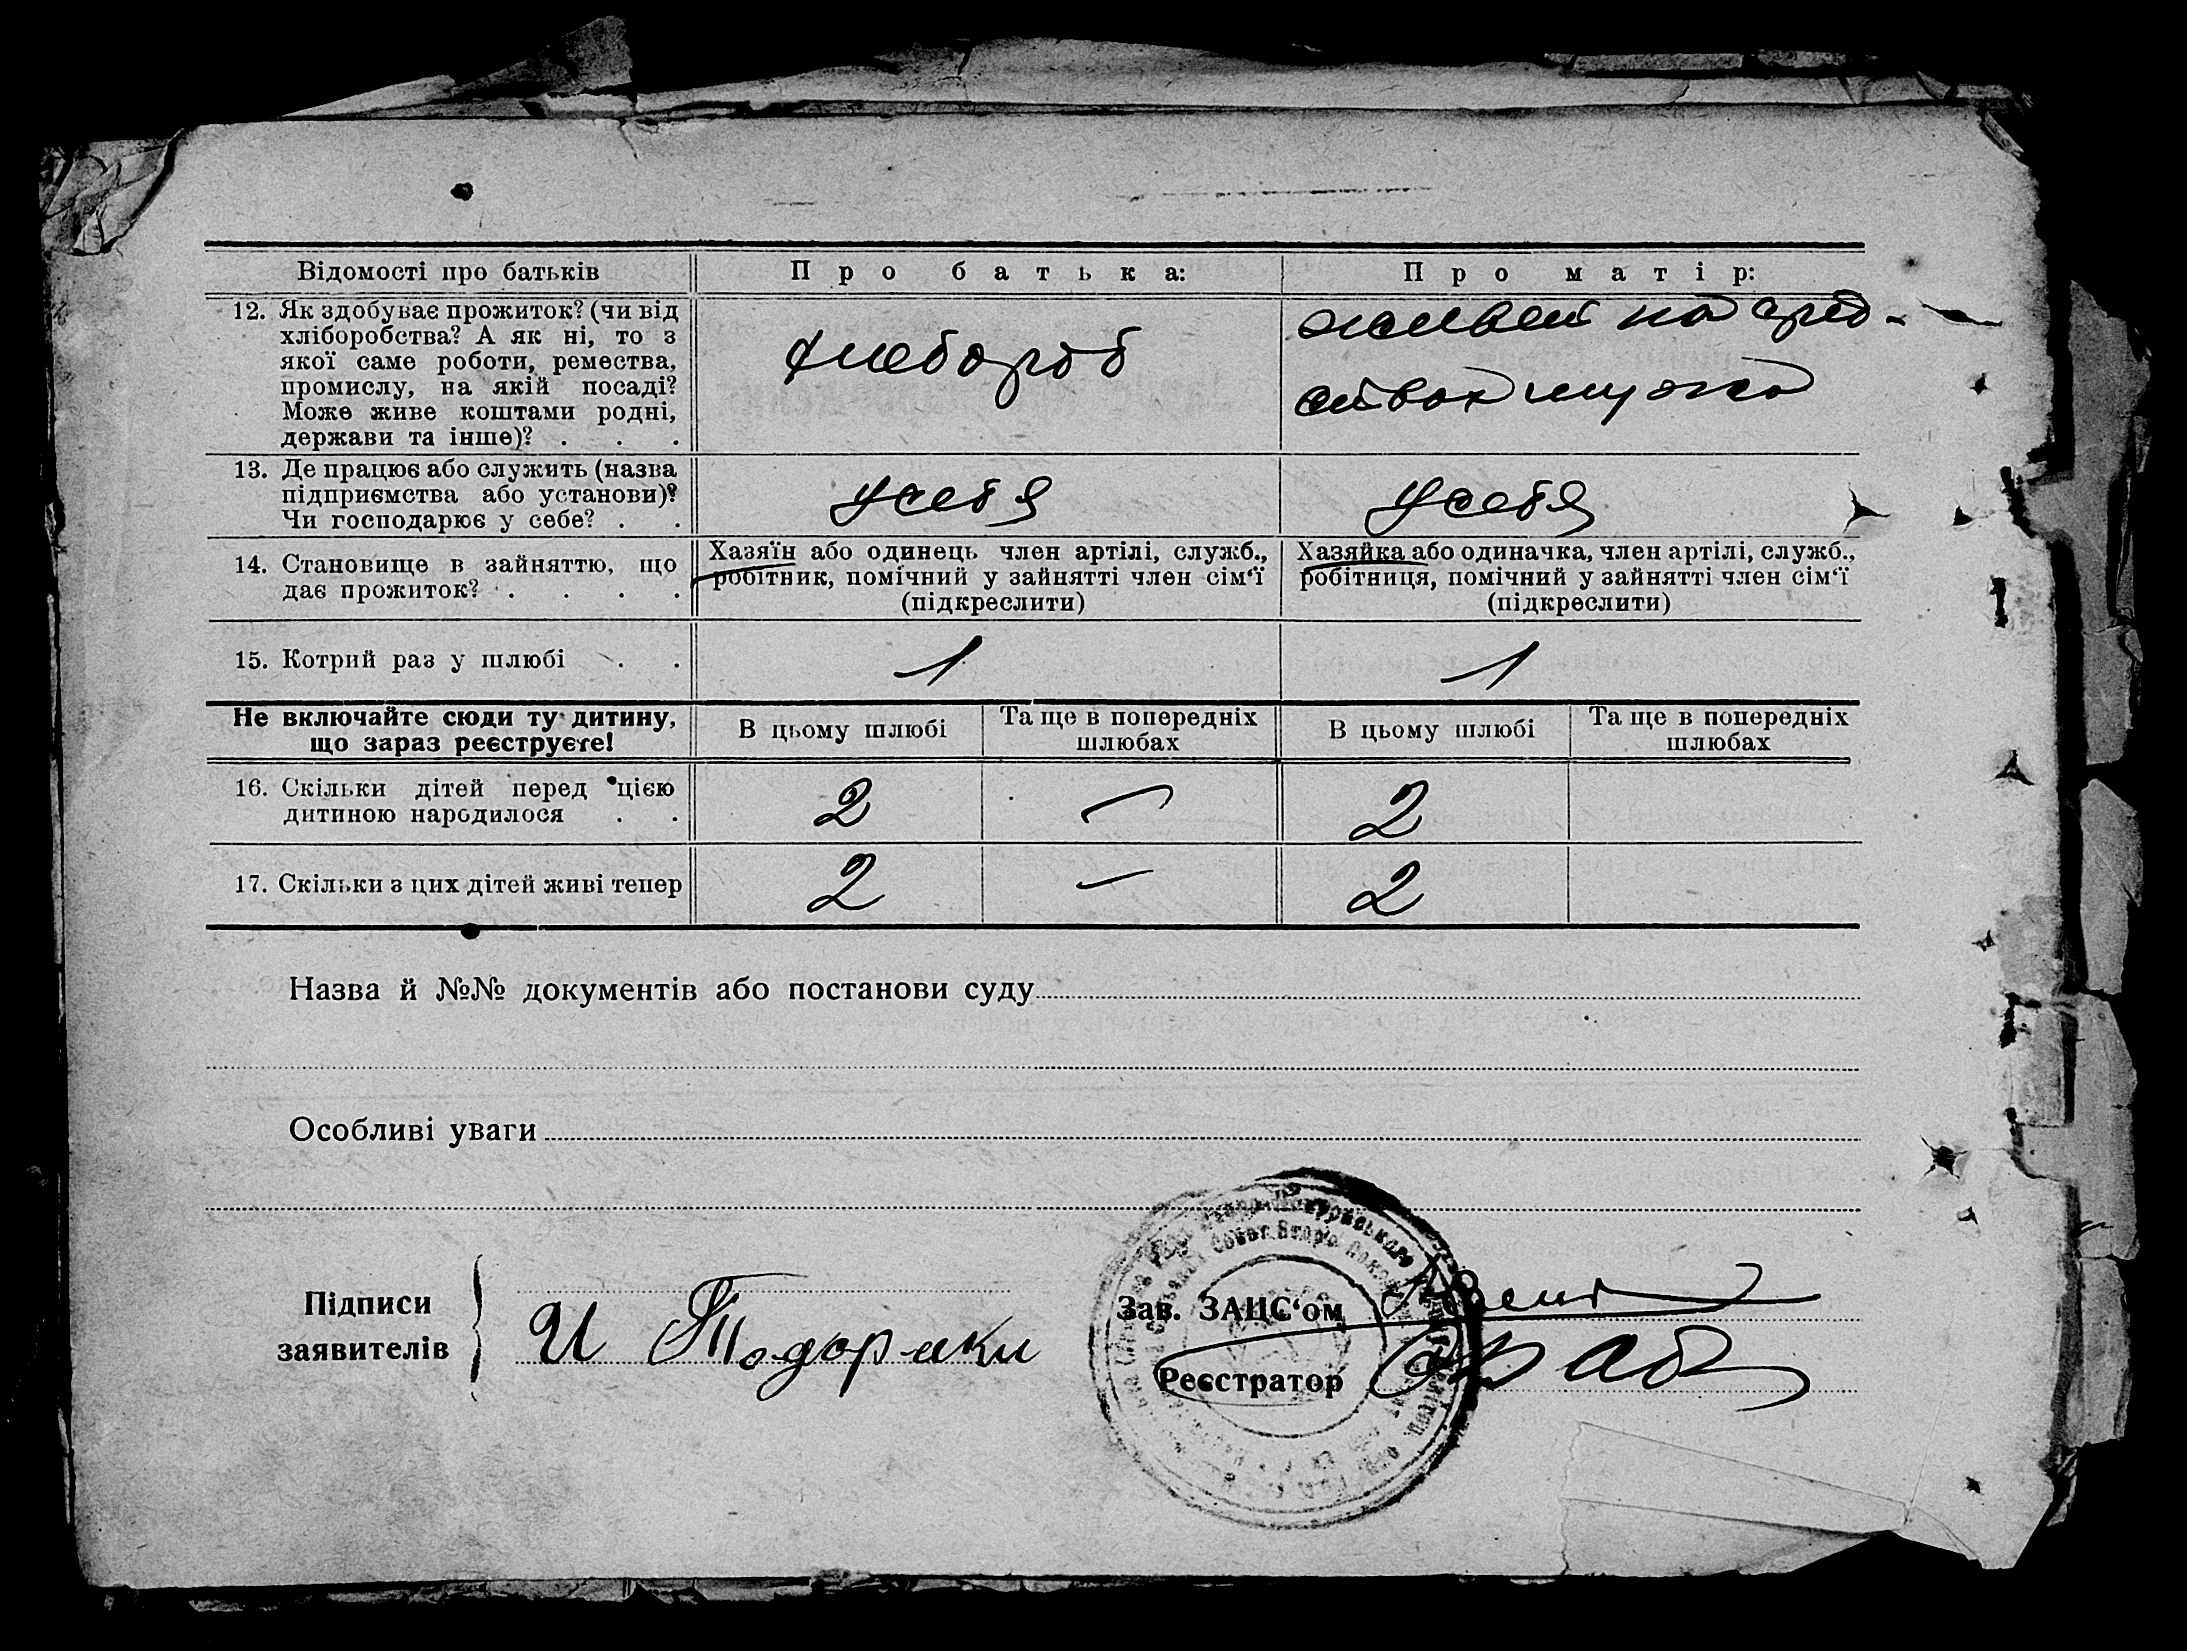 Відомості про батьків
Про батька:
Про матір:
12. Як здобуває прожиток? (чи від
хліборобства? А як ні, то з
якої саме роботи, ремества,
промислу, на якій посаді?
Може живе коштами родні,
держави та інше)? . . .
хлебороб
живет на сред-
ствах мужа
13. Де працює або служить (назва
підприємства або установи)?
Чи господарює у себе? . .
у себя
у себя
14. Становище в зайняттю, що
дає прожиток? . . . .
Хазяїн або одинець член артілі, служб.,
робітник, помічний у зайнятті член сім‘ї
(підкреслити)
Хазяйка або одиначка, член артілі, служб.,
робітниця, помічний у зайнятті член сім‘ї
(підкреслити)
15. Котрий раз у шлюбі . .
1
1
Не включайте сюди ту дитину,
що зараз реєструєте!
В цьому шлюбі
Та ще в попередніх
шлюбах
В цьому шлюбі
Та ще в попередніх
шлюбах
16. Скільки дітей перед цією
дитиною народилося . .
2
—
2
17. Скільки з цих дітей живі тепер
2
—
2
Назва й №№ документів або постанови суду
Особливі уваги
Підписи
заявителів
И Тодораки
Зав. ЗАЦС‘ом
Реєстратор